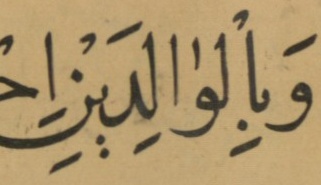 وَبِالْوٰالِدَيْنِ اِح